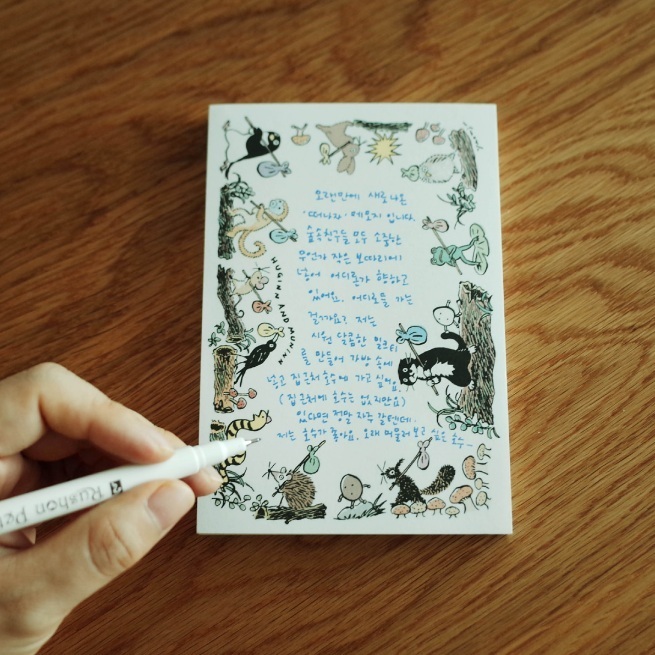 오랜만에 새로나온
'떠나자' 메모지 입니다.
숲속친구들 모두 소중한
무언가 작은 보따리에
넣어 어디론가 향하고
있어요. 어디로들 가는
걸까요? 저는
시원 달콤한 밀크티
를 만들어 가방 속에
넣고 집 근처 호수에 가고 싶어요.
(집 근처에 호수는 없지만요)
있다면 정말 자주 갈텐데.
저는 호수가 좋아요. 오래 머물러 보고 싶은 호수_
HUGINN AND MUNINN
Rushon Pe